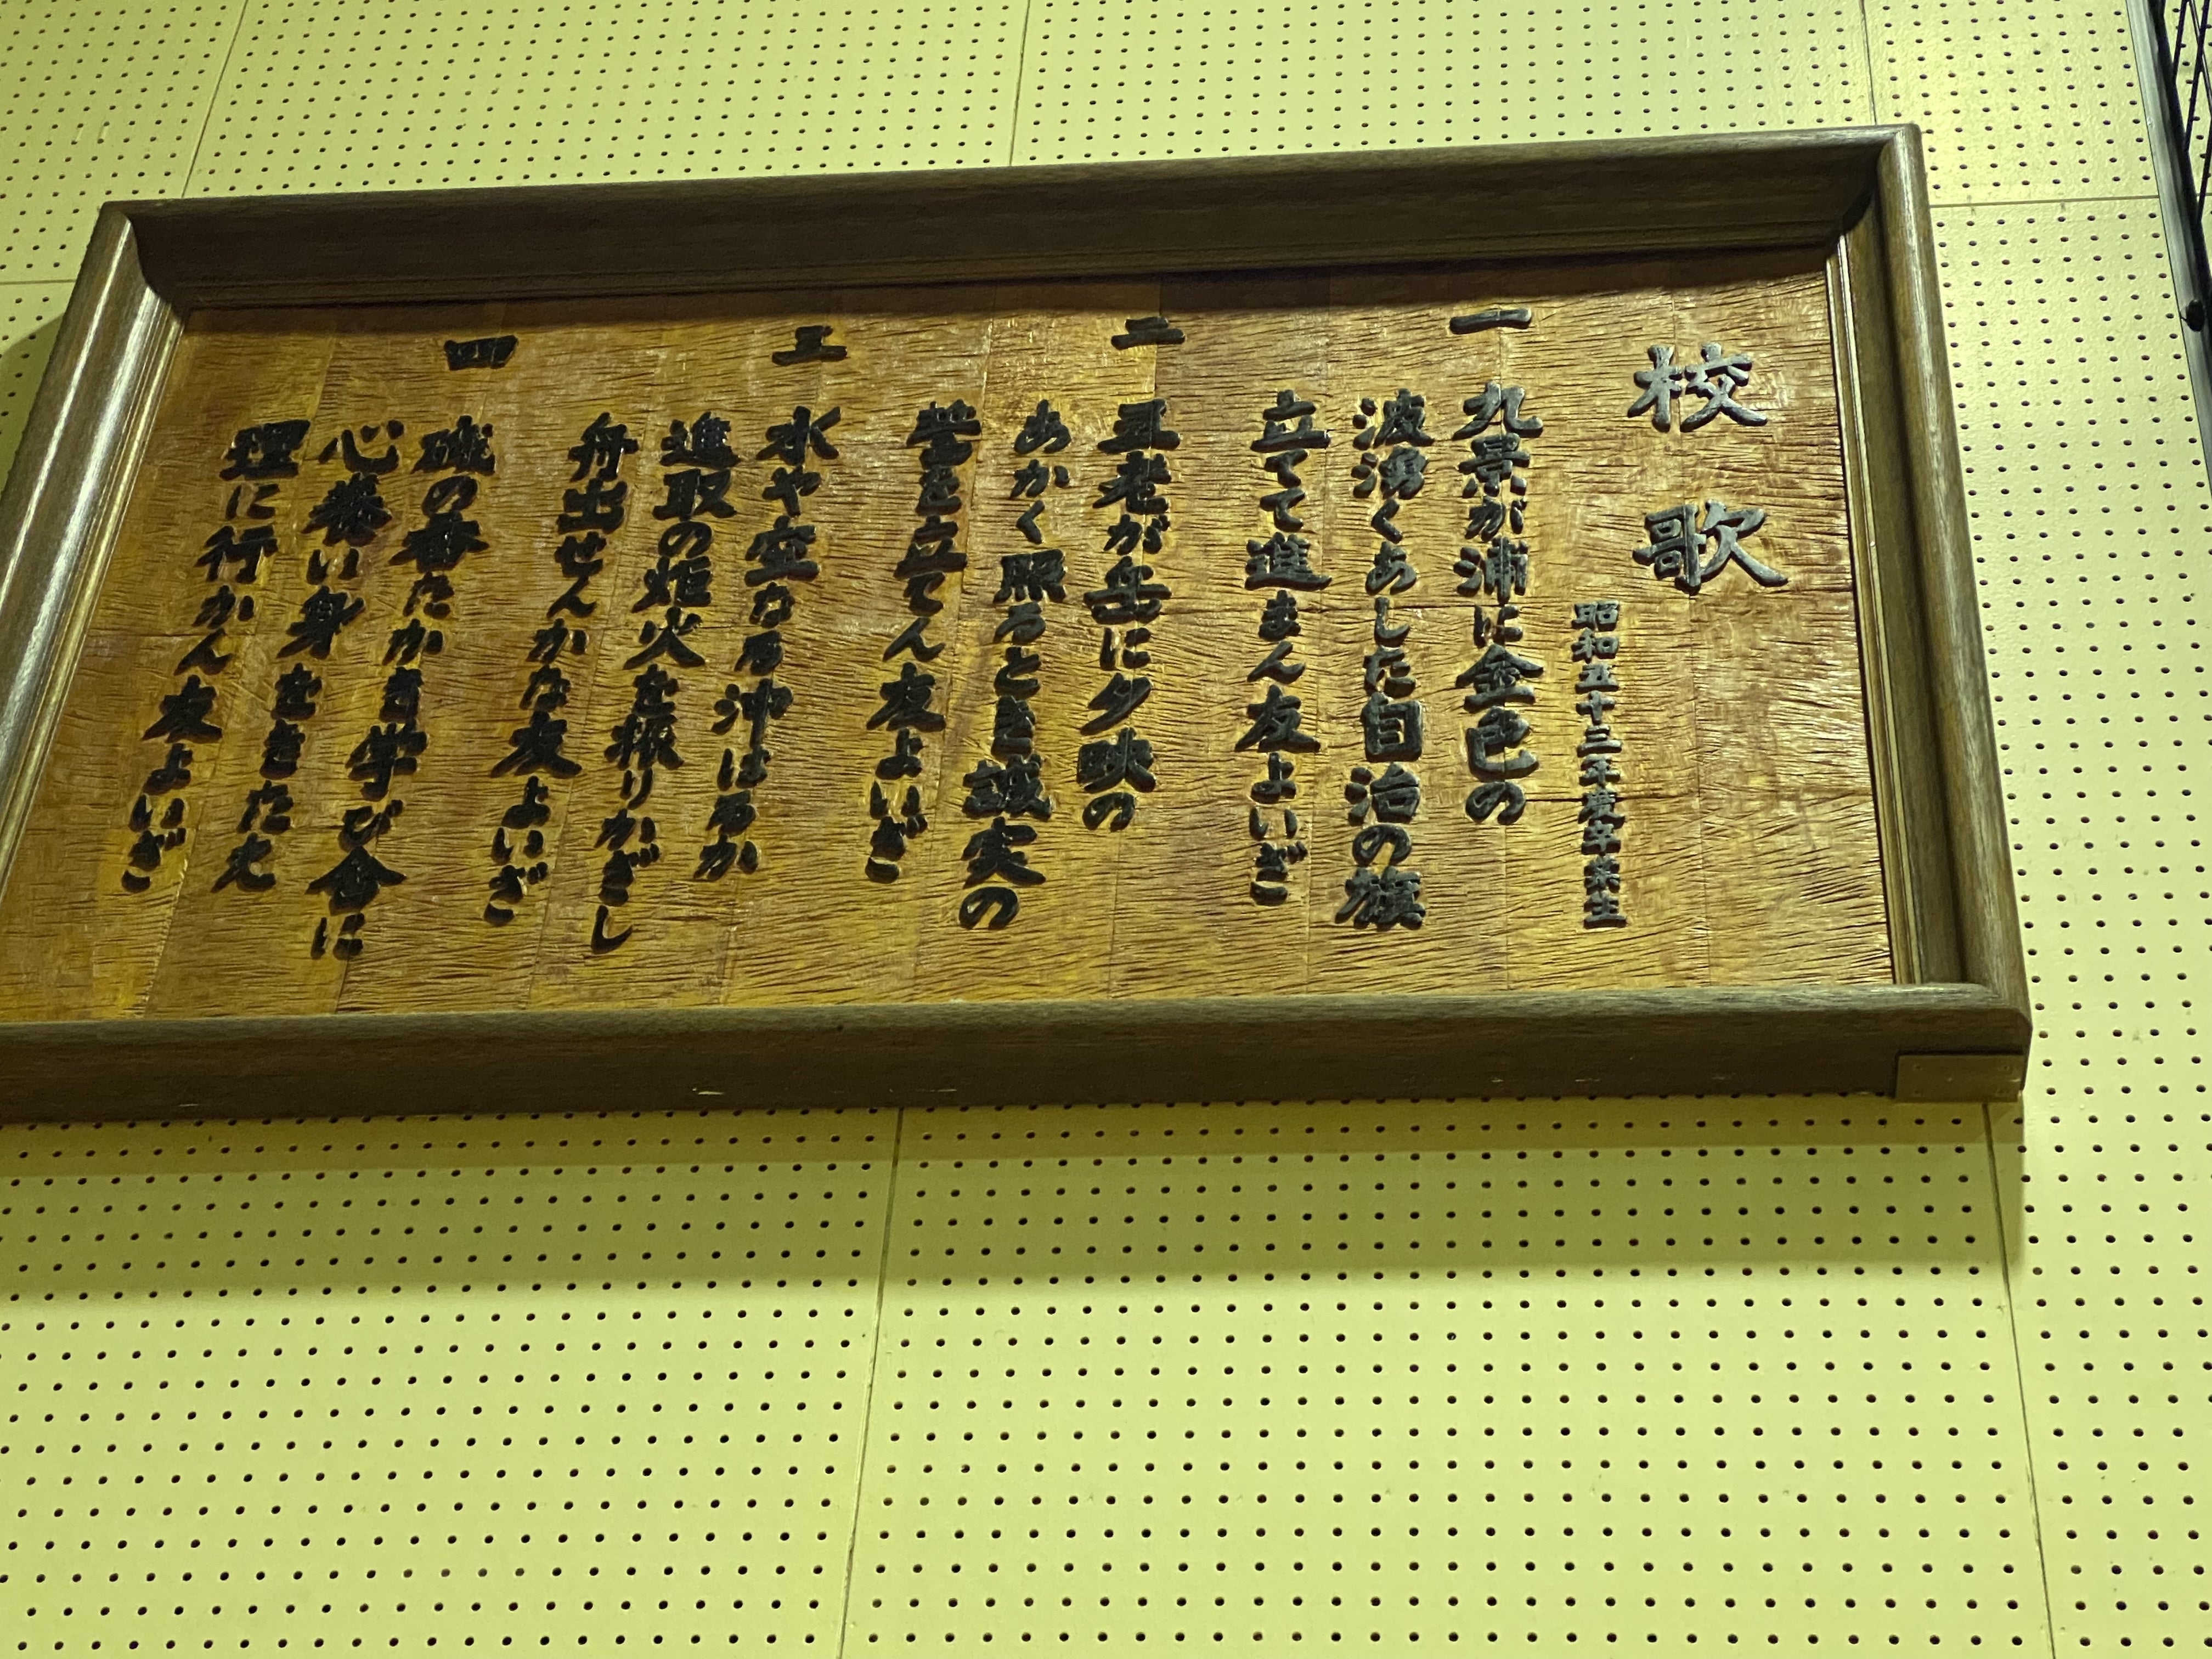 校歌
昭和五十三年度卒業生
一 九景が浦に金色の
波湧くあした自治の旗
立てて進まん友よいざ
二 五老が岳に夕映の
あかく照るとき誠実の
誉を立てん友よいざ
三 水や空なる沖はるか
進取の炬火を振りかざし
舟出せんかな友よいざ
四 磯の香たかき学び舎に
心養い身をきたえ
理に行かん友よいざ